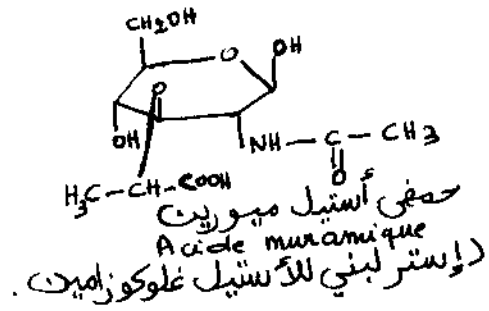 CH2OH
O
OH
O
OH
NH—C—CH3
O
H3C—CH—COOH
حمض أستيل ميوريت
Acide muramique
(إستر لبني للأستيل غلوكوزامين.